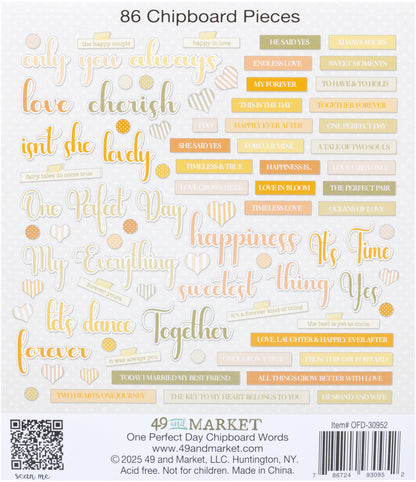 86 Chipboard Pieces
the happy couple
happy is love
HE SAID YES
ALWAYS YOURS
only you always
ENDLESS LOVE
SWEET MOMENTS
MY FOREVER
TO HAVE & TO HOLD
love cherish
THIS IS THE DAY
TOGETHER FOREVER
I DO
HAPPILY EVER AFTER
ONE PERFECT DAY
isn't she lovely
SHE SAID YES
FOREVER MINE
A TALE OF TWO SOULS
TIMELESS & TRUE
HAPPINESS IS...
fairy tales do come true
LOVE GROWS HERE
LOVE IN BLOOM
THE PERFECT PAIR
One Perfect Day
TIMELESS LOVE
OCEANS OF LOVE
happiness
It's Time
My Everything
sweetest thing
Yes
forever yours
let's dance
it's a forever kind of thing
the best is yet to come
Together
forever
LOVE, LAUGHTER & HAPPILY EVER AFTER
it was always you
ONCE UPON A TIME
FROM THIS DAY FORWARD
TODAY I MARRIED MY BEST FRIEND
ALL THINGS GROW BETTER WITH LOVE
TWO HEARTS, ONE JOURNEY
THE KEY TO MY HEART BELONGS TO YOU
HUSBAND AND WIFE
49 and MARKET
One Perfect Day Chipboard Words
www.49andmarket.com
© 2025 49 and Market, LLC. Huntington, NY.
Acid free. Not for children. Made in China.
scan me
Item# OFD-30952
7 86724 93095 2